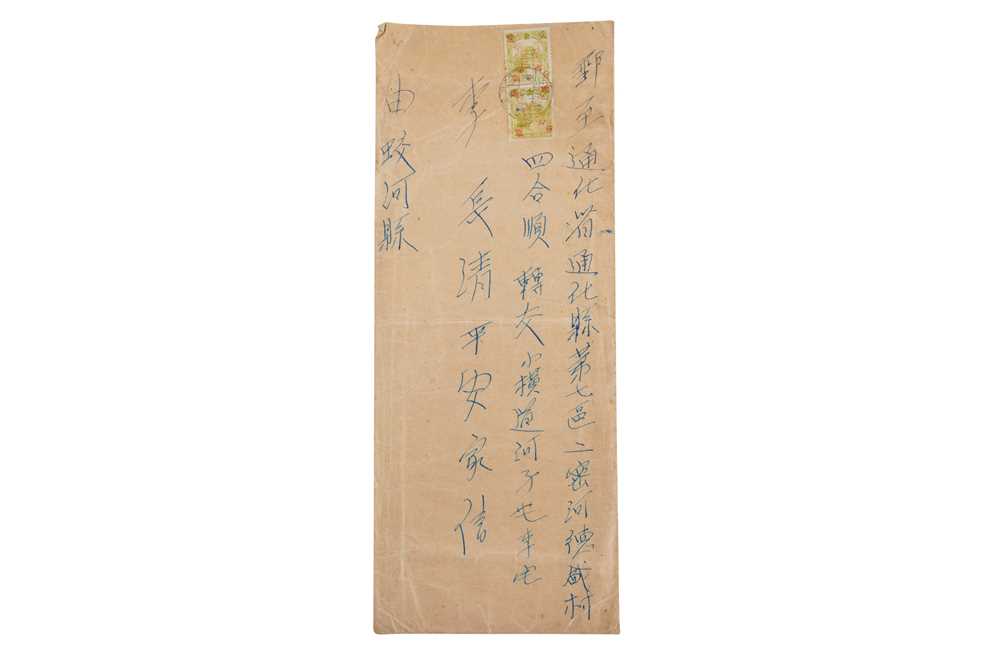 郵至通化省通化縣第七區二密河德盛村
四合順轉交小橫道河子屯車屯
李長清平安家信
由蛟河縣